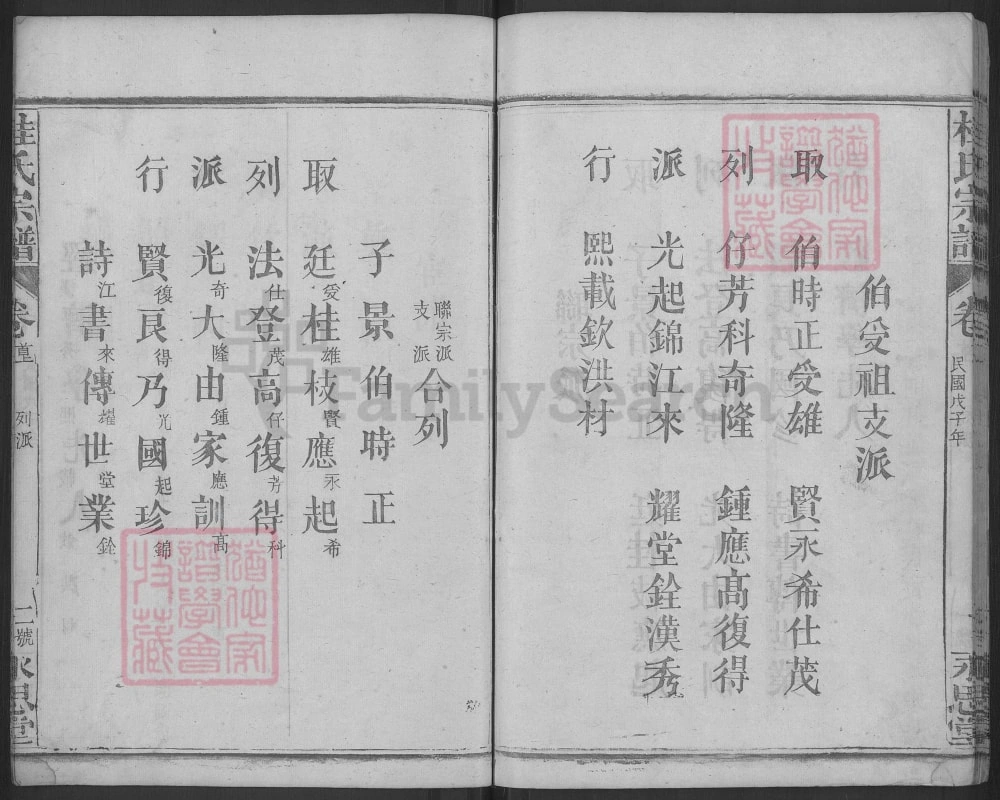 桂氏宗譜
卷
民國戊子年
永思堂
伯受祖支派
取 伯時正受雄 賢永希仕茂
列 仔芳科奇隆 鍾應高復得
派 光起錦江來 耀堂銓漢秀
行 熙載欽洪材
聯宗派支派合列
子景伯時正
取 廷受桂雄枝賢應永起希
列 法仕登茂高仔復芳得科
派 光奇大隆由鍾家應訓高
行 賢復良得乃光國起珍錦
詩江書來傳耀世堂業銓
桂氏宗譜
卷首
列派
二號
永思堂
FamilySearch